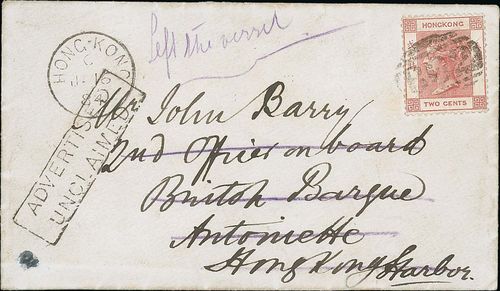 left the vessel
HONGKONG
TWO CENTS
HONG-KONG
C
ADVERTISED
UNCLAIMED
Mr John Barry
2nd Officer on board
British Barque
Antoinette
Hong Kong Harbor.